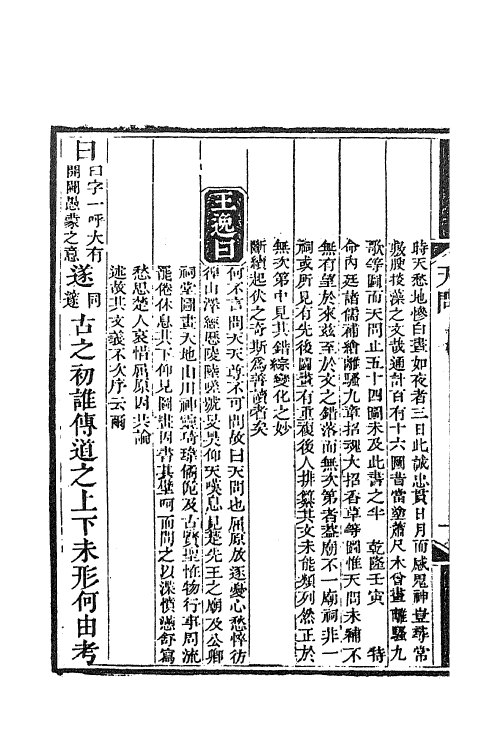 天問
時天愁地慘白晝如夜者三日此誠忠貫日月而感鬼神豈尋常
敷腴掞藻之文哉通計百有十六圖昔當塗蕭尺木曾畫離騷九
歌等圖而天問止五十四圖未及此書之半 乾隆壬寅 特
命內廷諸儒補繪離騷九章招魂大招香草等圖惟天問未補不
無有望於來茲至於文之錯落而無次第者蓋廟不一廟祠非一
祠或所見有先後圖畫有重複後人排纂其文未能類列然正於
無次第中見其錯綜變化之妙
斷續起伏之奇斯為善讀者矣
王逸曰
何不言問天天尊不可問故曰天問也屈原放逐憂心愁悴彷
徨山澤經歷陵陸嗟號旻昊仰天嘆息見楚先王之廟及公卿
祠堂圖畫天地山川神靈琦瑋僪佹及古賢聖怪物行事周流
罷倦休息其下仰見圖畫因書其壁呵而問之以渫憤懣舒寫
愁思楚人哀惜屈原因共論
述故其文義不次序云爾
曰
曰字一呼大有
開闢愚蒙之意
遂
同
邃
古之初誰傳道之上下未形何由考